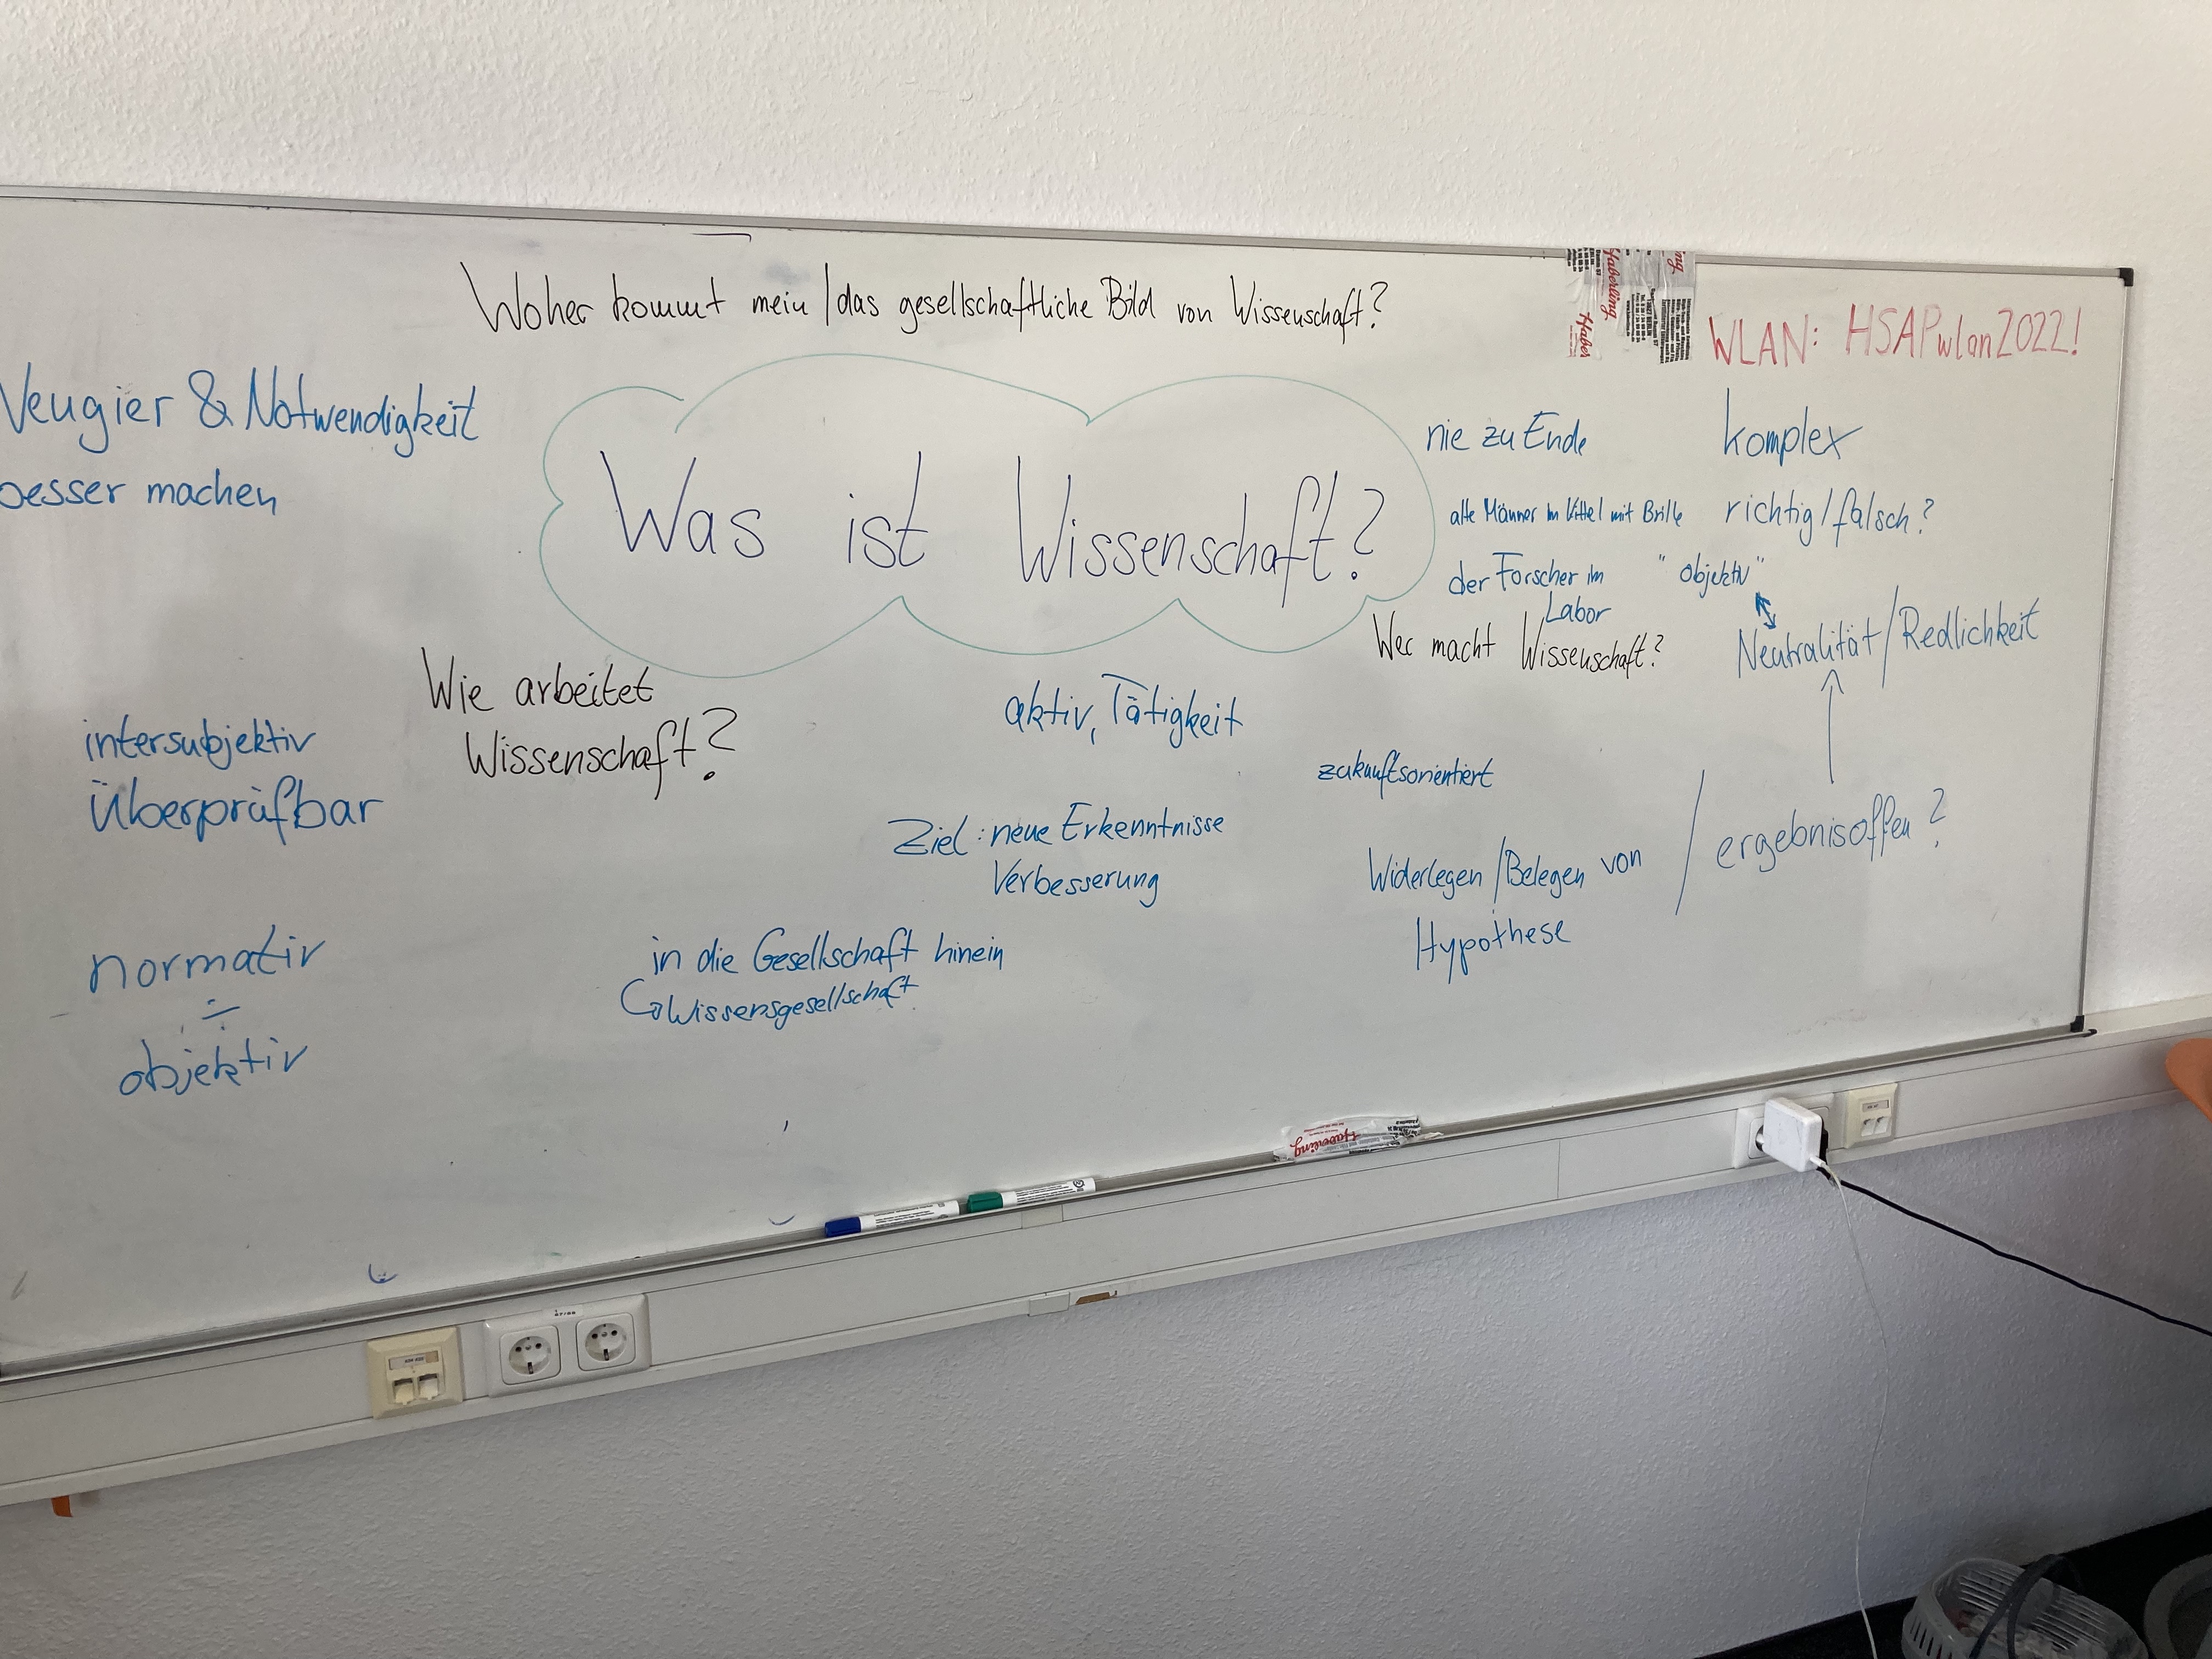 Woher kommt mein/das gesellschaftliche Bild von Wissenschaft?
WLAN: HSAPwlan2022!
Neugier & Notwendigkeit
besser machen
Was ist Wissenschaft?
nie zu Ende
komplex
alte Männer im Kittel mit Brille
richtig/falsch?
der Forscher im
Labor
"objektiv"
Wer macht Wissenschaft?
Neutralität/Redlichkeit
Wie arbeitet
Wissenschaft?
aktiv, Tätigkeit
intersubjektiv
überprüfbar
zukunftsorientiert
Ziel: neue Erkenntnisse
Verbesserung
Widerlegen/Belegen von
Hypothese
/ ergebnisoffen?
normativ
÷
objektiv
in die Gesellschaft hinein
Wissensgesellschaft
Haberling
Haber
Haberling